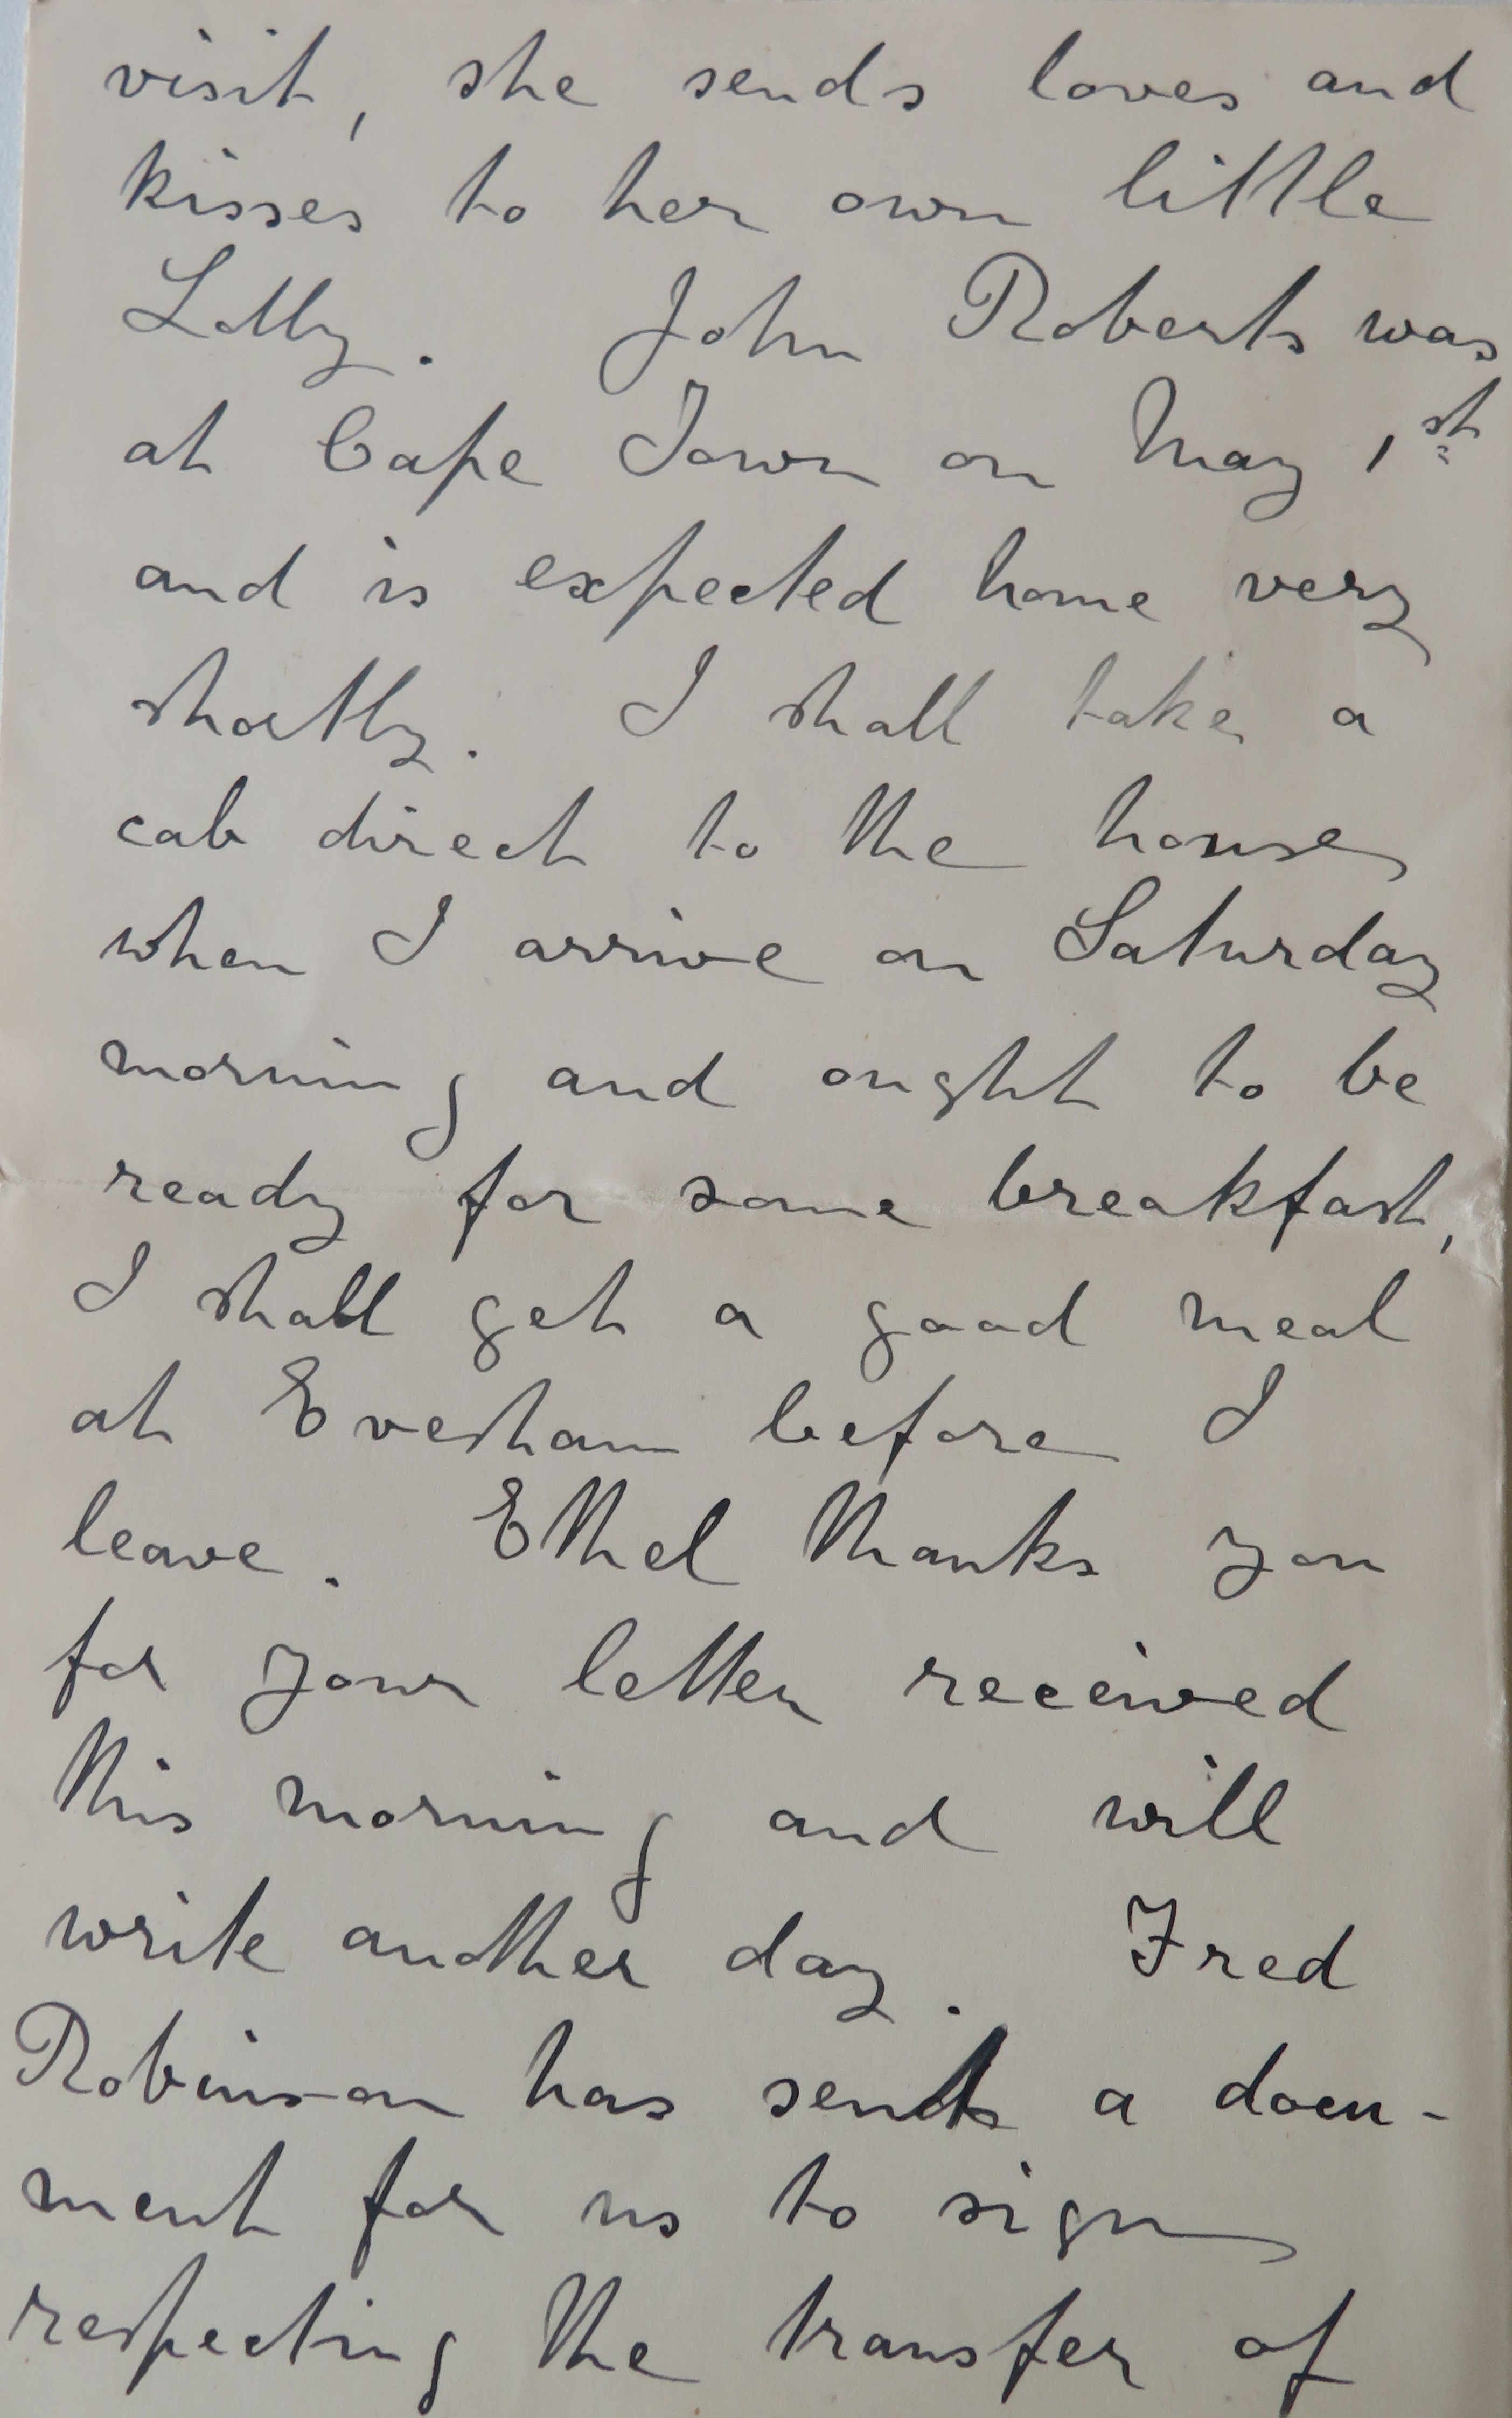 visit, she sends loves and
kisses to her own little
Lolly. John Roberts was
at Cape Town on May 1st
and is expected home very
shortly. I shall take a
cab direct to the house
when I arrive on Saturday
morning and ought to be
ready for some breakfast,
I shall get a good meal
at Evesham before I
leave. Ethel thanks you
for your letter received
this morning and will
write another day. Fred
Robinson has sent a docu-
ment for us to sign
respecting the transfer of